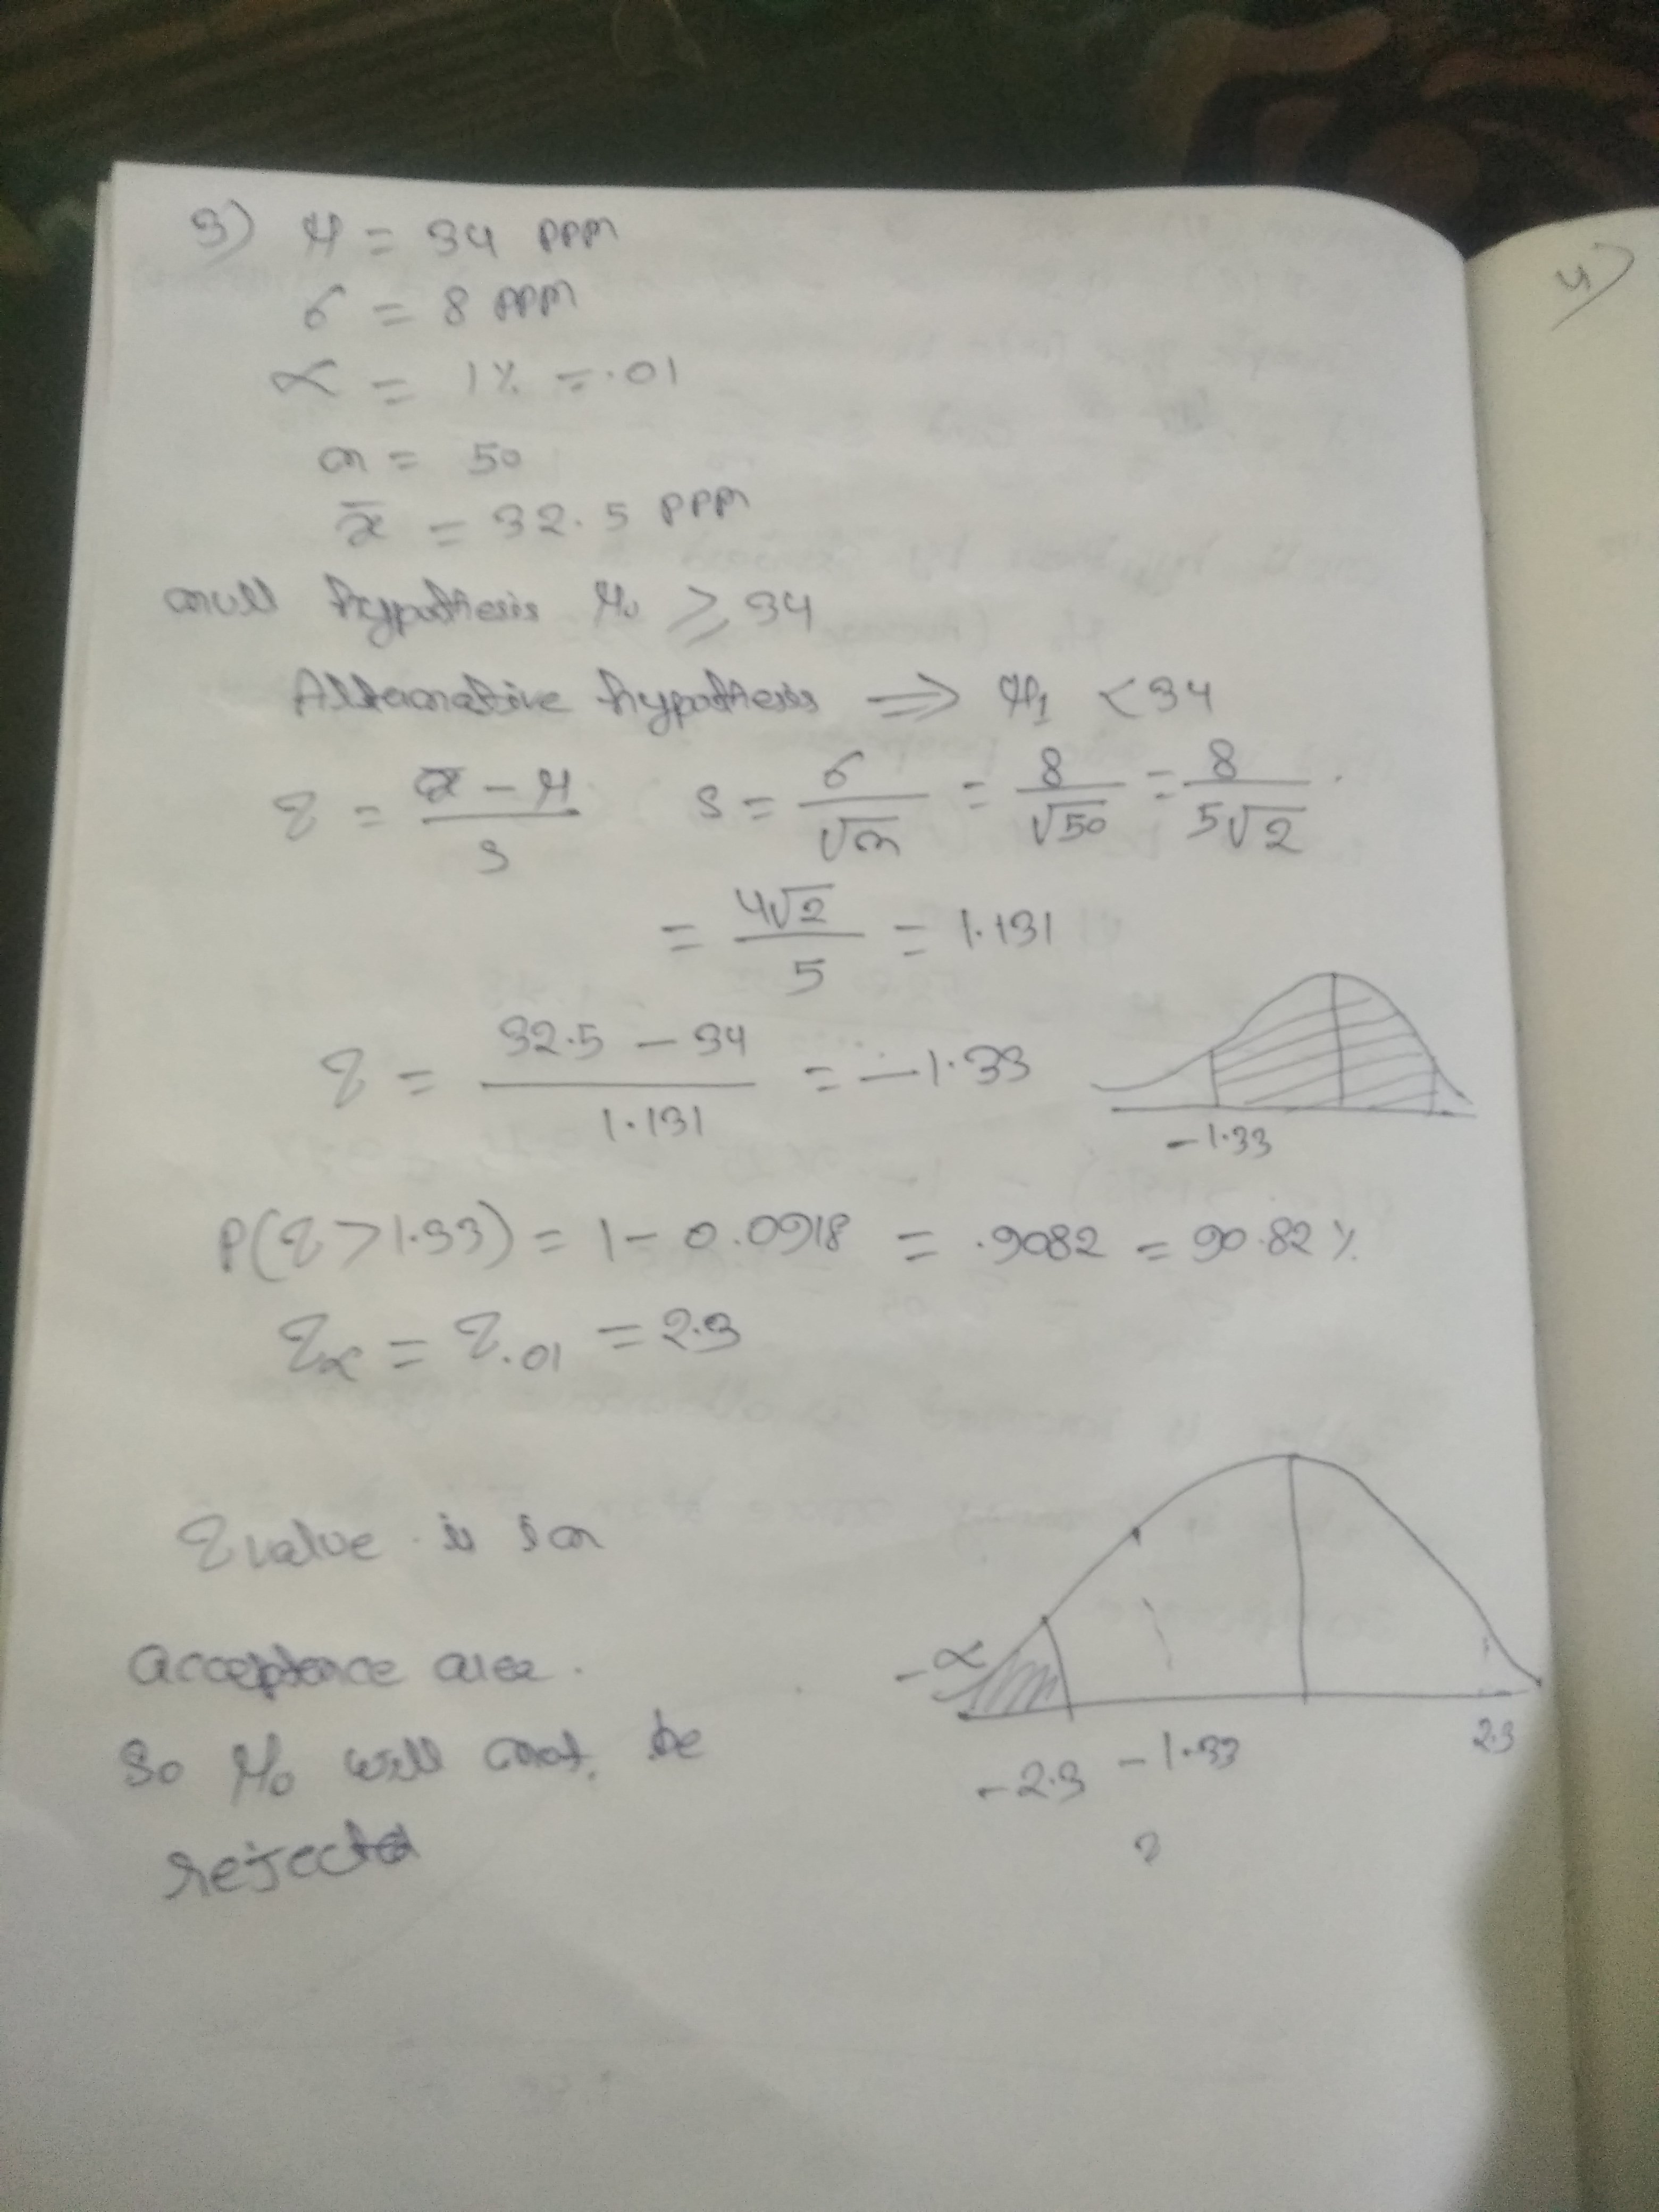 3) μ = 34 ppm
σ = 8 ppm
α = 1% = .01
n = 50
x̄ = 32.5 ppm
null hypothesis μ₀ ≥ 34
Alternative hypothesis ⇒ μ₁ < 34
z = (x̄ - μ)/s s = σ/√n = 8/√50 = 8/5√2
= 4√2/5 = 1.131
z = (32.5 - 34)/1.131 = -1.33
-1.33
P(z > 1.33) = 1 - 0.0918 = .9082 = 90.82%
zα = z.01 = 2.3
z value is in
acceptence area.
-α
So μ₀ will not be
-2.3 -1.33 2.3
rejected
4)